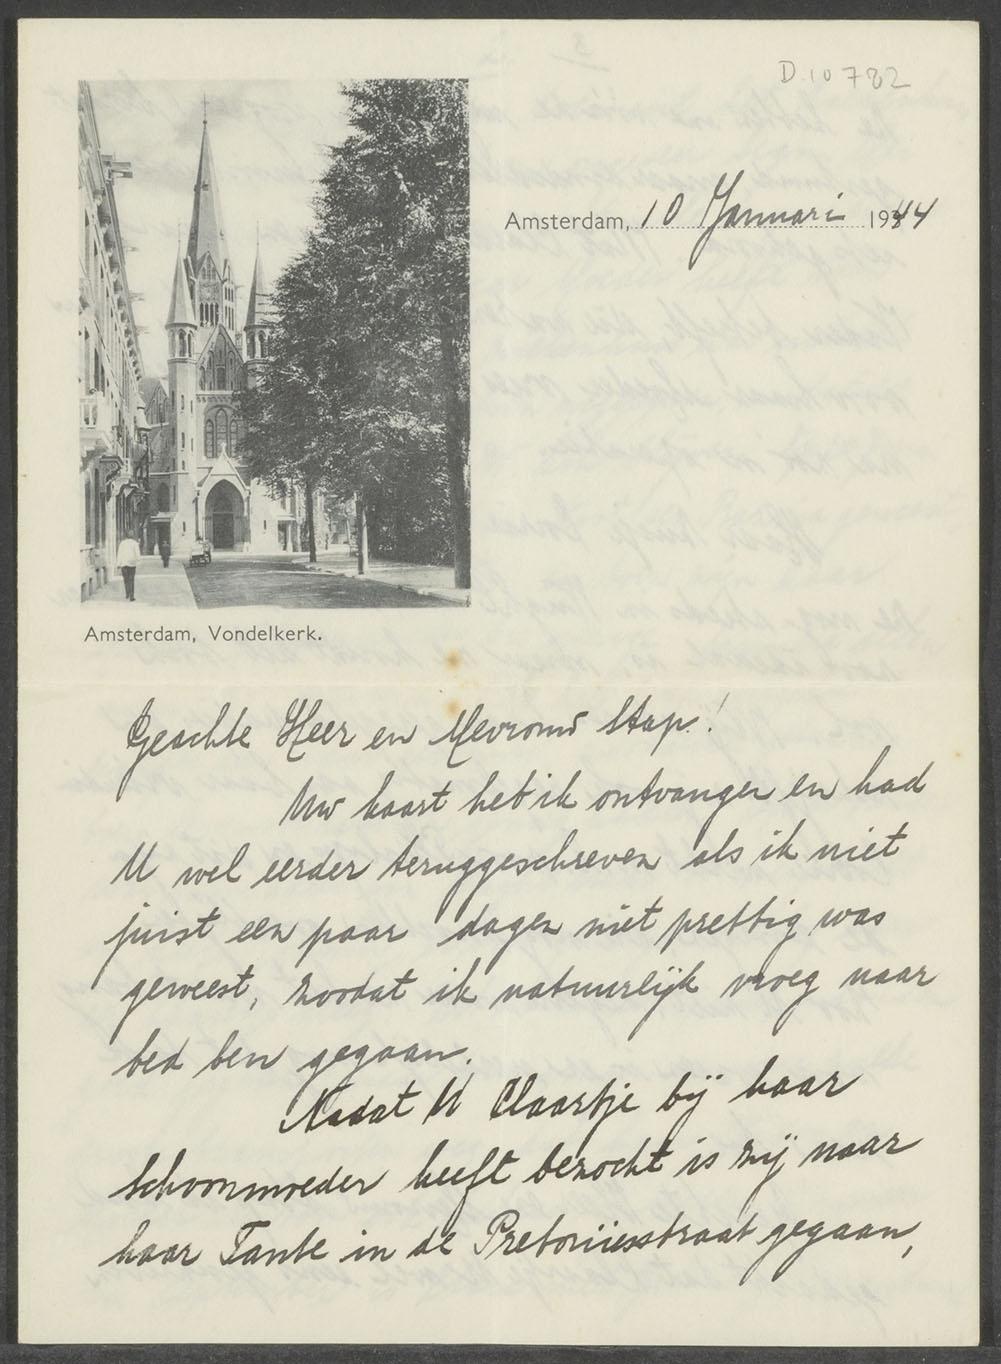 D.10782
Amsterdam, 10 Januari 1944
Amsterdam, Vondelkerk.
Geachte Heer en Mevrouw Stap!
Uw kaart heb ik ontvangen en had
U wel eerder teruggeschreven als ik niet
juist een paar dagen niet prettig was
geweest, zoodat ik natuurlijk vroeg naar
bed ben gegaan.
Nadat U Claartje bij haar
schoonmoeder heeft bezocht is zij naar
haar Tante in de Pretoriusstraat gegaan,